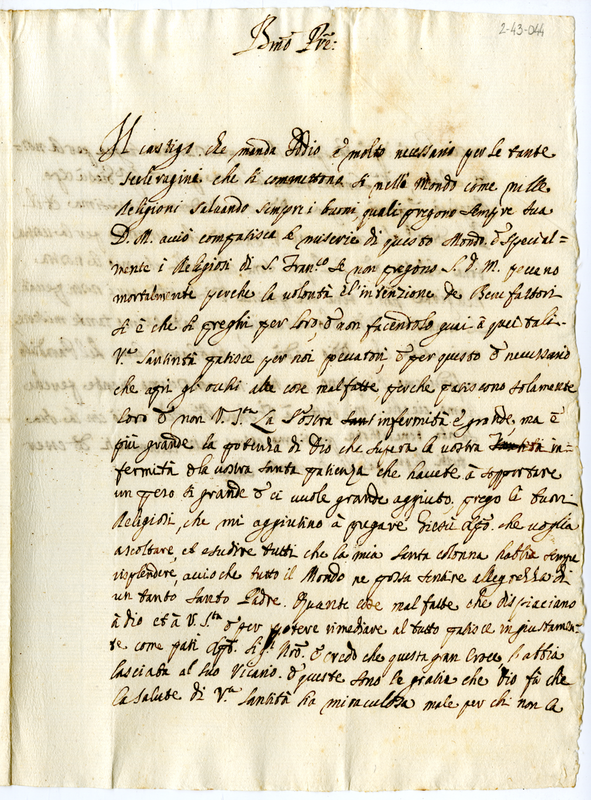 2-43-044
Bmo Pre:
Il castigo che manda Iddio è molto necessario per le tante
sceleragini che si commettono si nelle Mondo come nelle
Religioni salvando sempre i buoni quali pregono sempre sua
D. M. acciò compatisca le miserie di questo Mondo. è special=
mente i Religiosi di S. Franco se non pregono S. D. M. peccano
mortalmente perche la volontà è l'intenzione de Benefattori
si è che si preghi per loro, è non facendolo guai à quei tali.
Va. Santità patisce per noi peccatori, è per questo è necessario
che apri gl'occhi alle cose malfatte perche patiscono solamente
loro è non V. Sta. La Vostra infermità è grande, ma è
più grande la potenza di Dio che supera la vostra in=
fermità è la vostra santa patienza che havete à sopportare
un peso si grande è ci vuole grande aggiuto. prego li buoni
Religiosi, che mi aggiutino à pregare Giesù che voglia
ascoltare, et esaudire tutti che la mia Santa colonna habbia sempre
risplendere, accioche tutto il Mondo ne possa sentire allegrezza di
un tanto Santo Padre. Quante cose malfatte che dispiaciano
à dio et à V. Sta. è per potere rimediare al tutto patisce ingiustamen=
te come patì Sigr. Nro. è credo che questa gran Croce l'abbia
lasciata al suo Vicario. è queste sono le gratie che Dio fà che
la salute di Va. Santità sia miracolosa male per chi non la